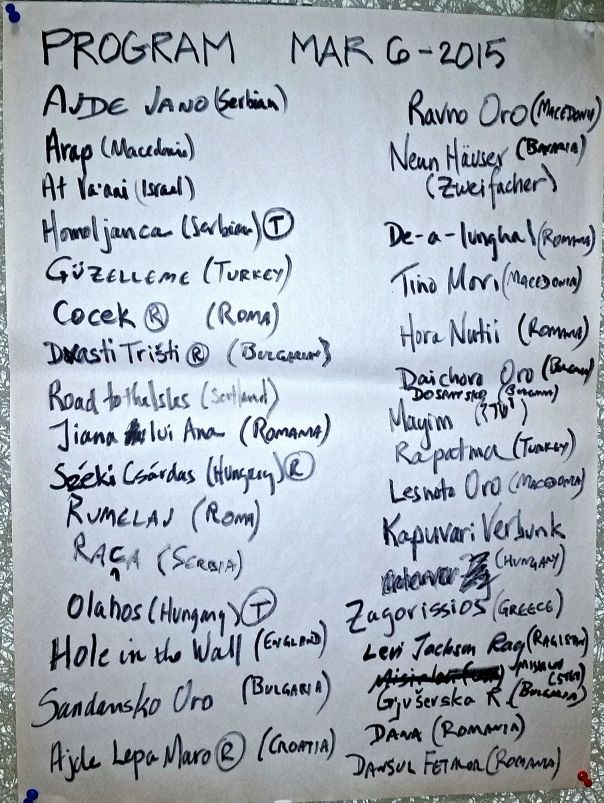 PROGRAM MAR 6-2015
AJDE JANO (Serbian)
Arap (Macedonia)
At Va'ani (Israel)
Homoljanca (Serbian) T
GÜZELLEME (TURKEY)
COCEK R (ROMA)
Trišti R (BULGARIAN)
Road to the Isles (Scotland)
Jiana lui Ana (ROMANIA)
Széki Csárdas (Hungary) R
RUMELAJ (ROMA)
RAČA (SERBIA)
Olahos (Hungary) T
Hole in the Wall (ENGLAND)
Sandansko Oro (BULGARIA)
Ajde Lepa Maro R (CROATIA)
Ravno Oro (MACEDONIA)
Neun Häuser (BAVARIA)
(Zweifacher)
De-a-lungual (ROMANIA)
Tino Mori (MACEDONIA)
Hora Nutii (ROMANIA)
Daichovo Oro
Mayim
Rapatma (TURKEY)
Lesnoto Oro (MACEDONIA)
Kapuvari Verbunk
(HUNGARY)
Zagorissios (GREECE)
Levi Jackson Rag
Gjuševska R. (BULGARIA)
DANA (ROMANIA)
DANSUL FETELOR (ROMANIA)